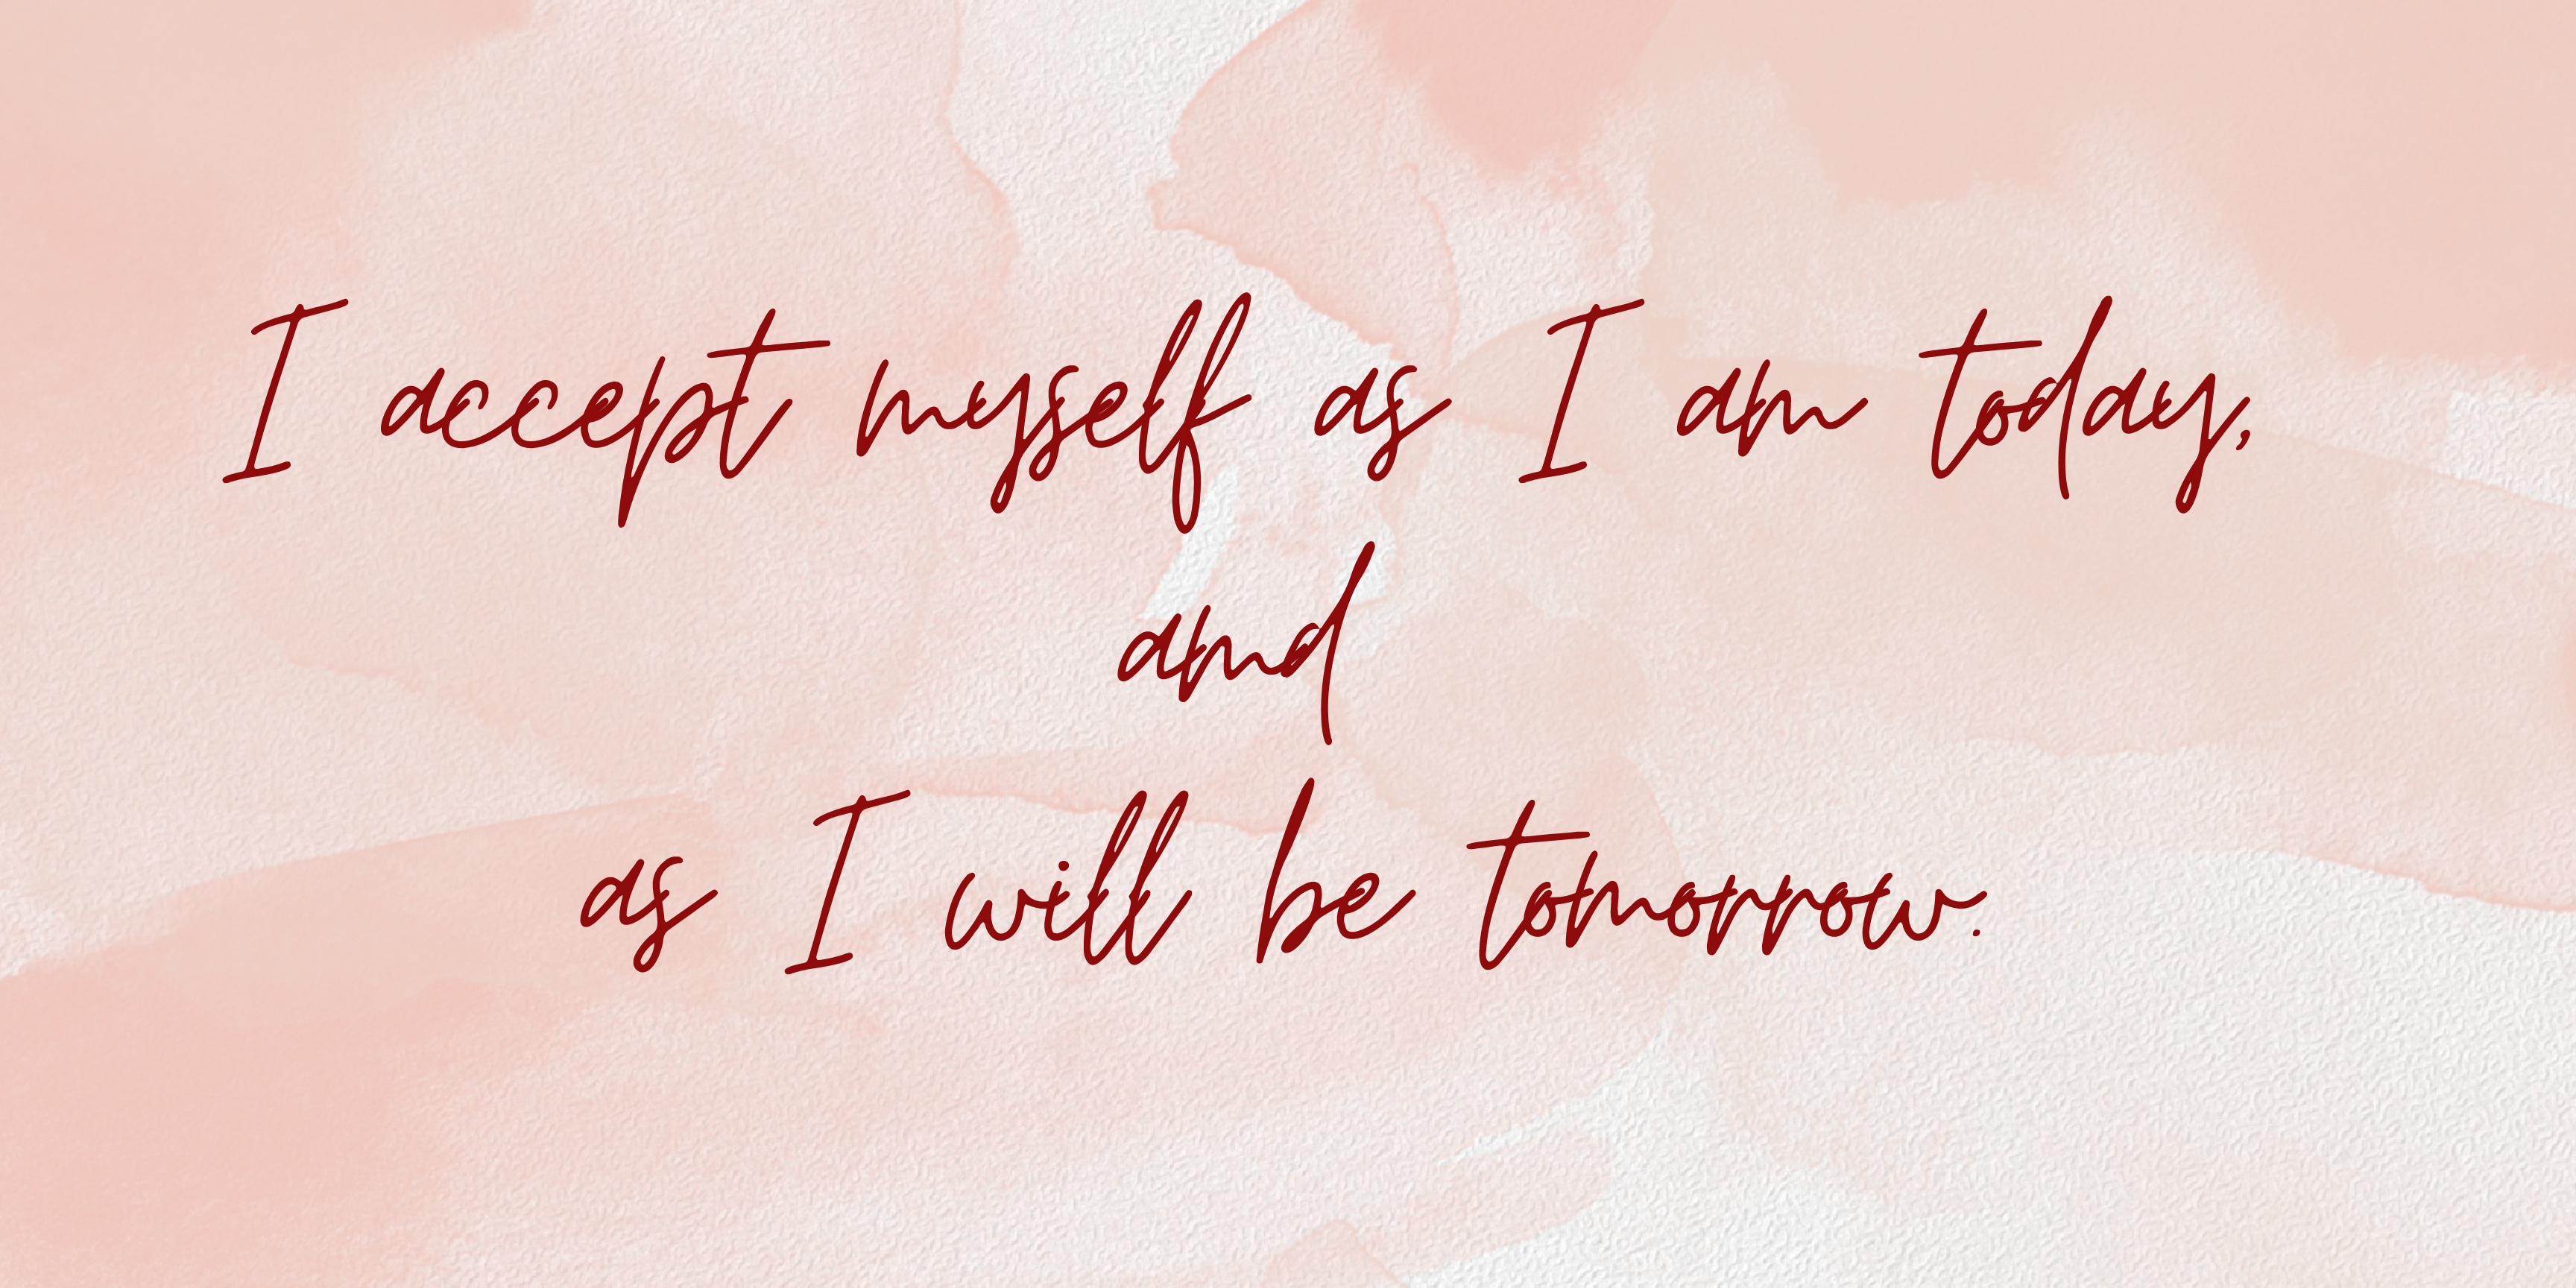 I accept myself as I am today,
amd
as I will be tomorrow.